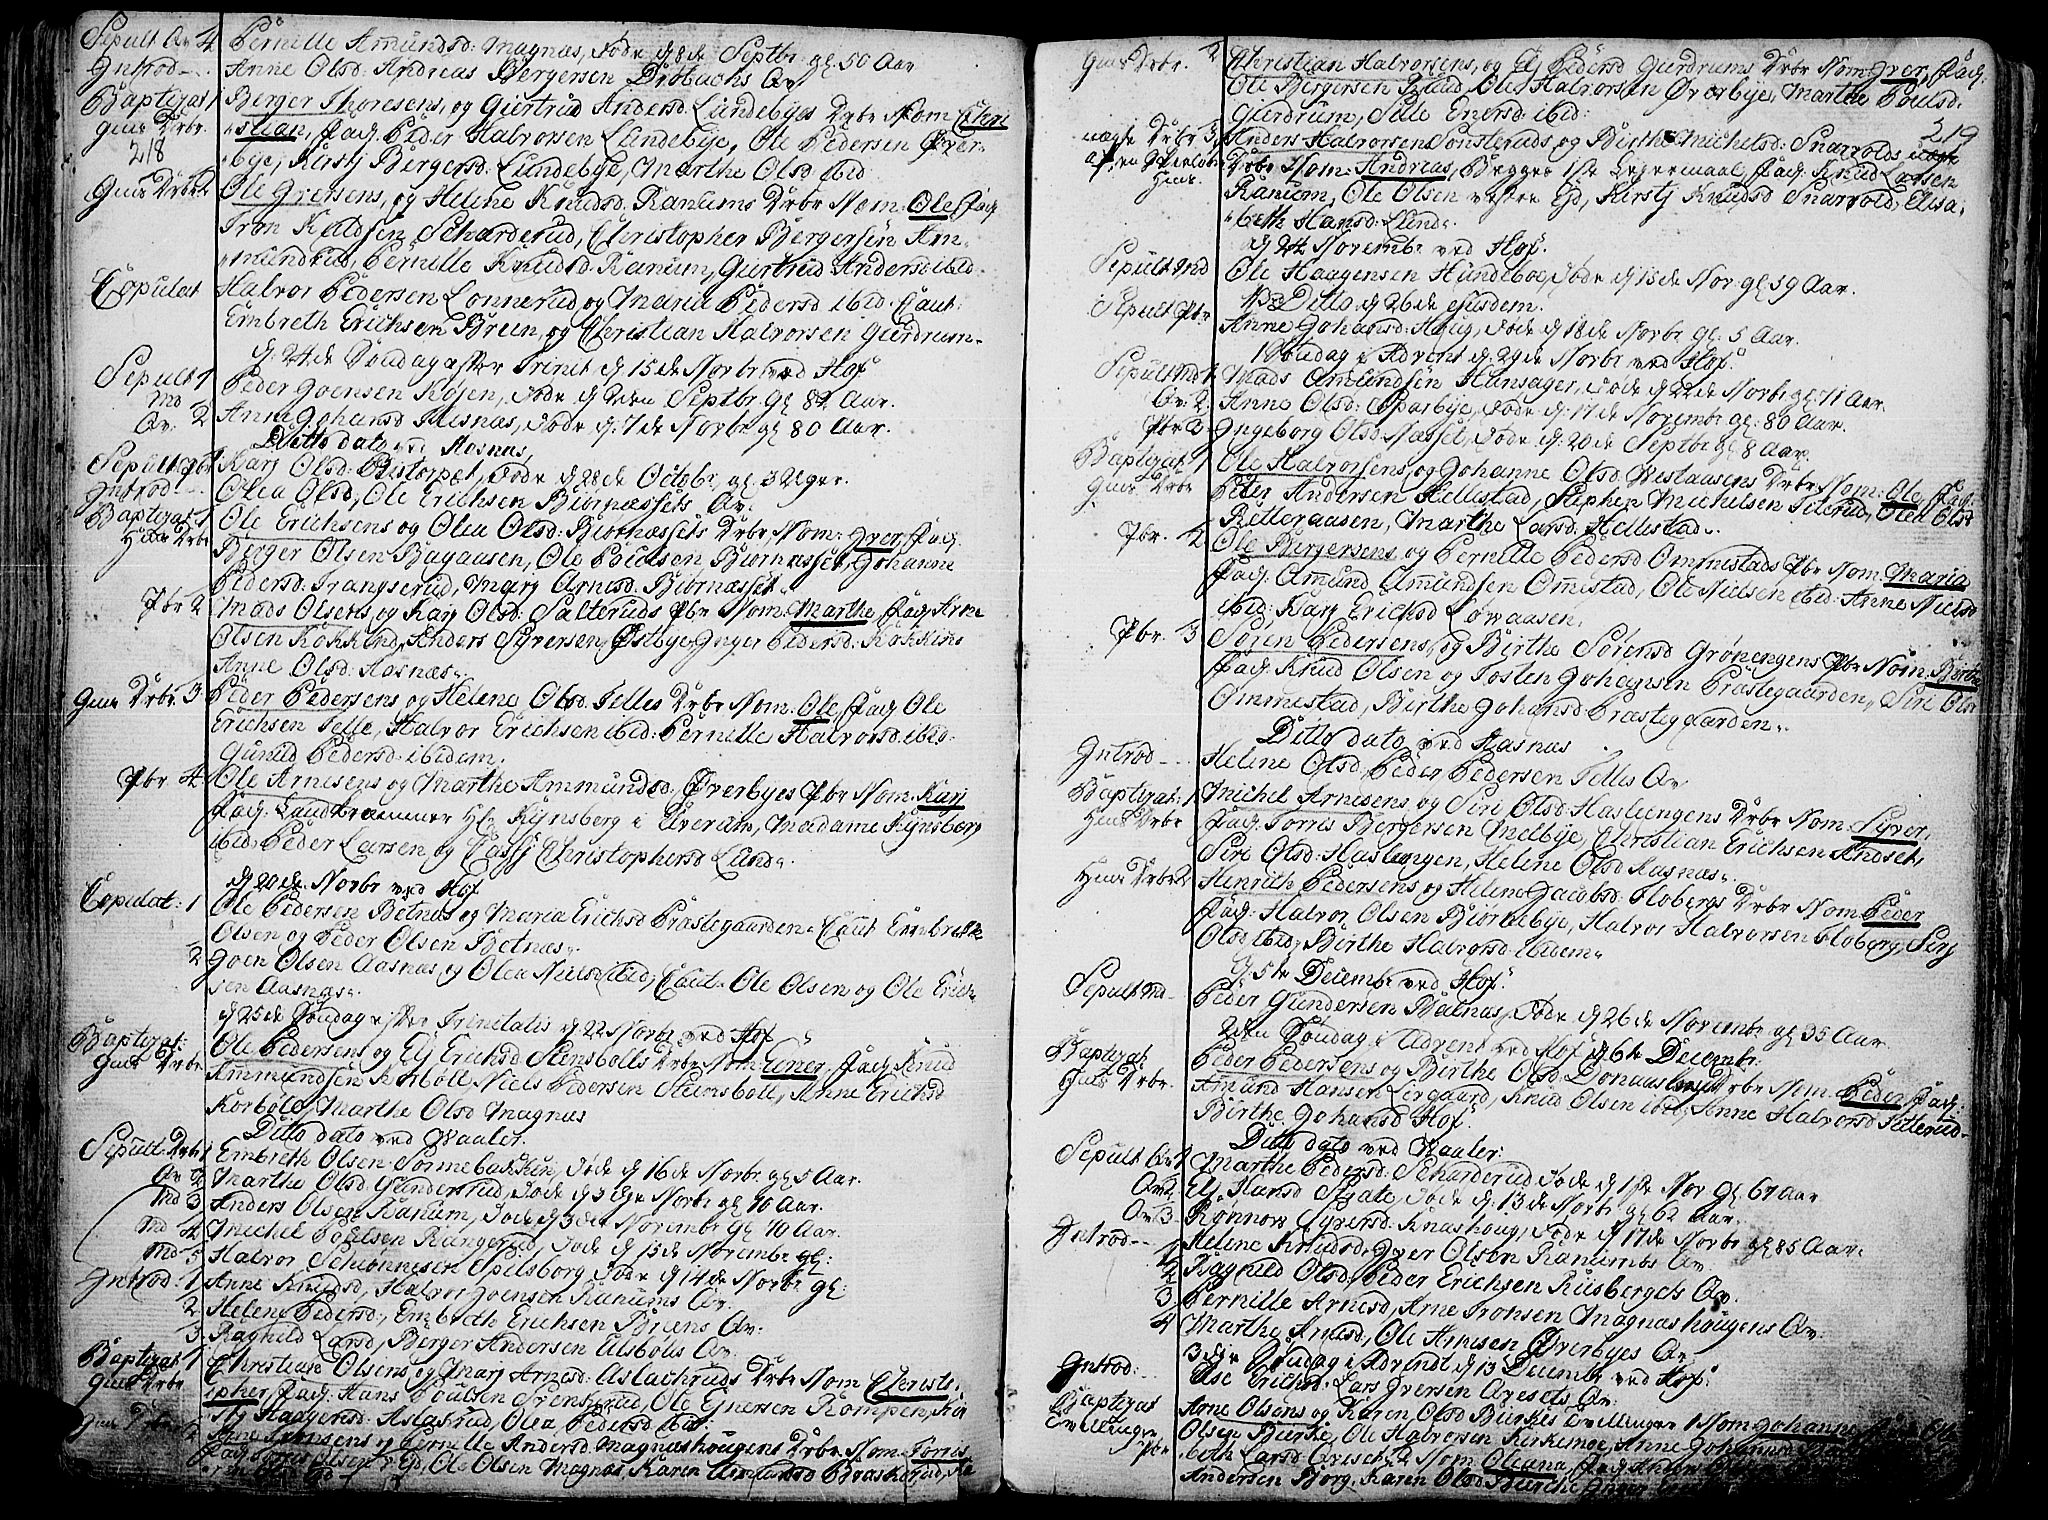 Sepult Qv 4 Pernille Amundsd: Magnæs, døde d 8de Septbr gl 50 Aar
Introd - Anne Olsd: Andreas Bergersen Drobachs Qv.
Baptizat 1 Berger Thoresens, og Giertrud Andersd Lundebyes Drbr Nom: Chri
Huus Drbr. stian, Fad: Peder Halvorsen Lundebye, Ole Pedersen Øver-
218 bye, Kirstj Bergersd: Lundebye, Marthe Olsd ibid
Huus Drbr 2 Ole Gresens, og Helene Knudsd: Ranums Drbr Nom: Ole, Fad
Tron Keldsen Scharderud, Christopher Bergersen Am-
mundrud, Pernille Knudsd: Ranum, Giertrud Andersd ibid.
Copulat Halvor Pedersen Lønnerud og Maria Pedersd ibid. Caut:
Embreth Erichsen Breen, og Christian Halvorsen Gierdrum.
d. 24de Søndag efter Trinit d 15de Novbr ved Hof
Sepult 1 Peder Joensen Rojen, døde d 2den Septbr. gl 82 Aar.
Md
Qv: 2 Anne Johansd Risnæs, døde d: 7de Novbr gl 80 Aar.
Ditto dato ved Aasnæs
Sepult pbr 1 Karj Olsd: Bistorpet, døde d 28de Octobr, gl 3 Uger.
Introd - Olea Olsd, Ole Erichsen Biørnæssets Qv.
Baptizat 1 Ole Erichsens og Olea Olsd: Biørnæssets Drbr Nom: Iver, Fad:
Huus Drbr Berger Olsen Bagaasen, Ole Pedersen Biørnæsset, Johanne
Pedersd: Trangserud, Marj Arnesd: Biørnæsset
Pbr 2 Mads Olsens og Karj Olsd: Salteruds Pbr Nom: Marthe, Fad: Arne
Olsen Kokkind, Anders Syversen Østbye, Inger Pedersd: Kokkins
Anne Olsd: Aasnæs.
Huus Drbr 3 Peder Pedersens og Helene Olsd. Telles Drbr Nom: Ole, Fad: Ole
Erichsen Telle, Halvor Erichsen ibid: Pernille Halvorsd: ibid.
Gunild Pedersd: ibidem.
Pbr 4 Ole Arnesens og Marthe Ammundsd. Øverbyes Pbr Nom: Karj
Fad: Hr Rynsberg i Elverum, Madame Rynsberg
ibid, Peder Larsen og Cassj Christophersd Lund.
d 20de Novbr ved Hof
Copulat: 1 Ole Pedersen Botnæs og Maria Erichsd Præstegaarden. Caut Embreth
Olsen og Peder Olsen Botnæs.
2 Joen Olsen Aasnæs og Olea Nielsd ibid; Caut. Ole Olsen og Ole Erich-
sen Aasnæs.
d 25de Søndag efter Trinitatis d 22 Novbr ved Hof
Baptizat: Ole Pedersens og Elj Erichsd Stensbolls Drbr Nom: Einer, Fad: Knud
Huus Drbr Ammundsen Korbøll, Niels Pedersen Steinsboll, Anne Erichsd
Korbøll, Marthe Olsd Magnæs
Ditto dato ved Vaaler.
Sepult Drbr 1 Embreth Olsen Sønnebachken, døde d 16de Novbr gl 5 Aar.
Qv 2 Marthe Olsd: Gundersrud, døde d 3die Novbr gl 70 Aar.
Md 3 Anders Olsen Ranum, døde d 3de Novembr gl 70 Aar.
Md 4 Michel Poulsen Rangerud, døde d 13de Novembr gl:
Md 5 Halvor Schiønnesen Spilsborg døde d 14de Novbr gl:
Introd: 1 Anne Knudsd, Halvor Joensen Ranums Qv.
2. Helene Pedersd., Embreth Erichsen Breens Qv:
3. Ragnild Larsd, Berger Andersen Ulsbols Qv.
Baptizat 1 Christian Olsens og Marj Arnesd: Aslachruds Drbr Nom Christo-
Huus Drbr pher, Fad: Hans Poulsen Svensrud, Ole Ejnersen Kompen, Kir
stj Haagensd: Aslakrud, Olea Pedersd ibid:
Huus Drbr 2 Arne Tronsens og Pernille Andersd: Magnashougens Drbr Nom: Torris
Fad: Torris Olsen v: Ejd, Ole Olsen Magnæs, Karen Amundsd Braskerud,
Huus Drbr. 2 Christian Halvorsens, og Elj Pedersd Gierdrums Drbr Nom: Iver, Fad:
Ole Bergersen Riiud, Ole Halvorsen Øverbye, Marthe Poulsd.
Gierdrum, Sille Enersd ibid:
219
uægte Drbr 3 Anders Halvorsen Sønsteruds og Birthe Michelsd: Snarvolds uægte
Drbr Nom: Andreas, Begges 1ste Leyermaal, Fad: Knud Larsen
Huus. Ranum, Ole Olsen vestre Ejd, Kirstj Knudsd Snarvold, Elisa-
beth Hansd: Lund.
d 24 Novembr ved Hof.
Sepult Md Ole Haagensen Hundeboe, døde d 15de Nov gl 59 Aar.
Ditto d 26de ejusdem.
Sepult Pbr Anne Johansd: Haug, døde d 18de Novbr gl. 5 Aar.
1 Søndag i Advent d. 29de Novbr ved Hof.
Sepult Md 1 Mads Amundsen Hansager, døde d 22de Novbr gl: 71 Aar.
Qv: 2 Anne Olsd: Sparbye, døde d: 17de Novembr gl: 80 Aar.
Pbr 3 Ingeborg Olsd. Næsset, døde d: 20de Septbr gl 8 Aar.
Baptizat 1 Ole Halvorsens og Johanne Olsd. Westaasens Drbr Nom: Ole, Fad:
Huus Drbr Peder Andersen Hellestad, Stephen Michelsen Teterud, Olea Olsd
Retteraasen, Marthe Larsd: Hellestad.
Pbr. 2 Ole Bergersens og Pernille Pedersd Ommestads Pbr Nom: Maria
Fad: Amund Amundsen Omestad, Ole Nielsen ibid: Anne Nielsd
ibid: Karj Erichsd Løvaasen.
Pbr. 3 Søren Pedersens, og Birthe Sørensd Grønengens Pbr Nom: Birthe
Fad: Knud Olsen og Tosten Johansen Præstegaarden, Siri Olsd
Ommestad, Birthe Johansd: Præstegaarden.
Ditto dato ved Aasnæs
Introd - Helene Olsd, Peder Pedersen Telles Qv
Baptizat: 1 Michel Arnesens og Siri Olsd: Hasleengens Drbr Nom: Syver,
Huus Drbr Fad: Torris Bergersen Melbye, Christian Erichsen Andset,
Siri Olsd: Haslengen, Helene Olsd Aasnæs.
Huus Drbr 2 Henrich Pedersens og Helene Jacobsd: Flobergs Drbr Nom: Peder
Fad: Halvor Olsen Biørkebye, Halvor Halvorsen Floberg, Siri
Olsd ibid; Birthe Halvorsd. ibidem.
d. 5te Decembr ved Hof.
Sepult Md - Peder Gundersen Balnæs, døde d 26de Novembr gl 35 Aar.
2den Søndag i Advent ved Hof d 6te Decembr.
Baptizat Peder Pedersens og Birthe Olsd: Donaaslunds Drbr Nom: Peder, Fad:
Huus Drbr. Amund Hansen Liegaard, Knud Olsen ibid; Anne Halvorsd Fetterud-
Birthe Johansd Hof.
Ditto dato ved Vaaler:
Sepult Qv 1 Marthe Pedersd: Scharderud døde d 1ste Nov gl. 67 Aar
Qv 2. Elj Hansd Strate, døde d: 13de Novbr gl 62 Aar.
Qv 3. Rønnov Syversd: Knashoug, døde d 17de Novbr gl 85 Aar.
Introd - 1 Helene Knudsd, Iver Olsen Ranums Qv.
2 Ragnild Olsd, Peder Erichsen Riisbergets Qv.
3. Pernille Arnesd, Arne Tronsen Magnashougens Qv:
4 Marthe Arnesd, Ole Arnesen Øverbyes Qv
3die Søndag i Advendt d 13 Decembr ved Hof.
Introd: Else Erichsd: Lars Iversen Arnsets Qv.
Baptizat Arne Olsens og Karen Olsd Biirkes Tvillinger 1 Nom: Johanne,
Tvillinger Olsen Biirke, Ole Halvorsen Kirkemoe, Anne Johannesd
Pbr beth Larsd: Arnset, 2 Nom: Oleana, Fad: Anders
Andersen Borg, Karen Olsd Biirche, Inger